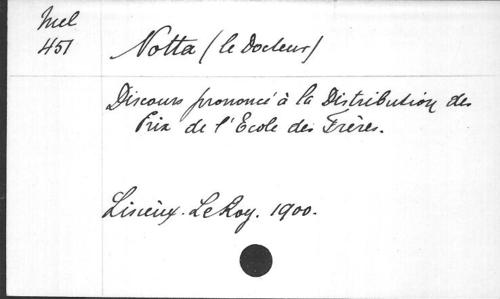 Mel
451
Notta (le Docteur)
Discours prononcé à la Distribution des
Prix de l'Ecole des Frères.
Lisieux. Le Roy. 1900.